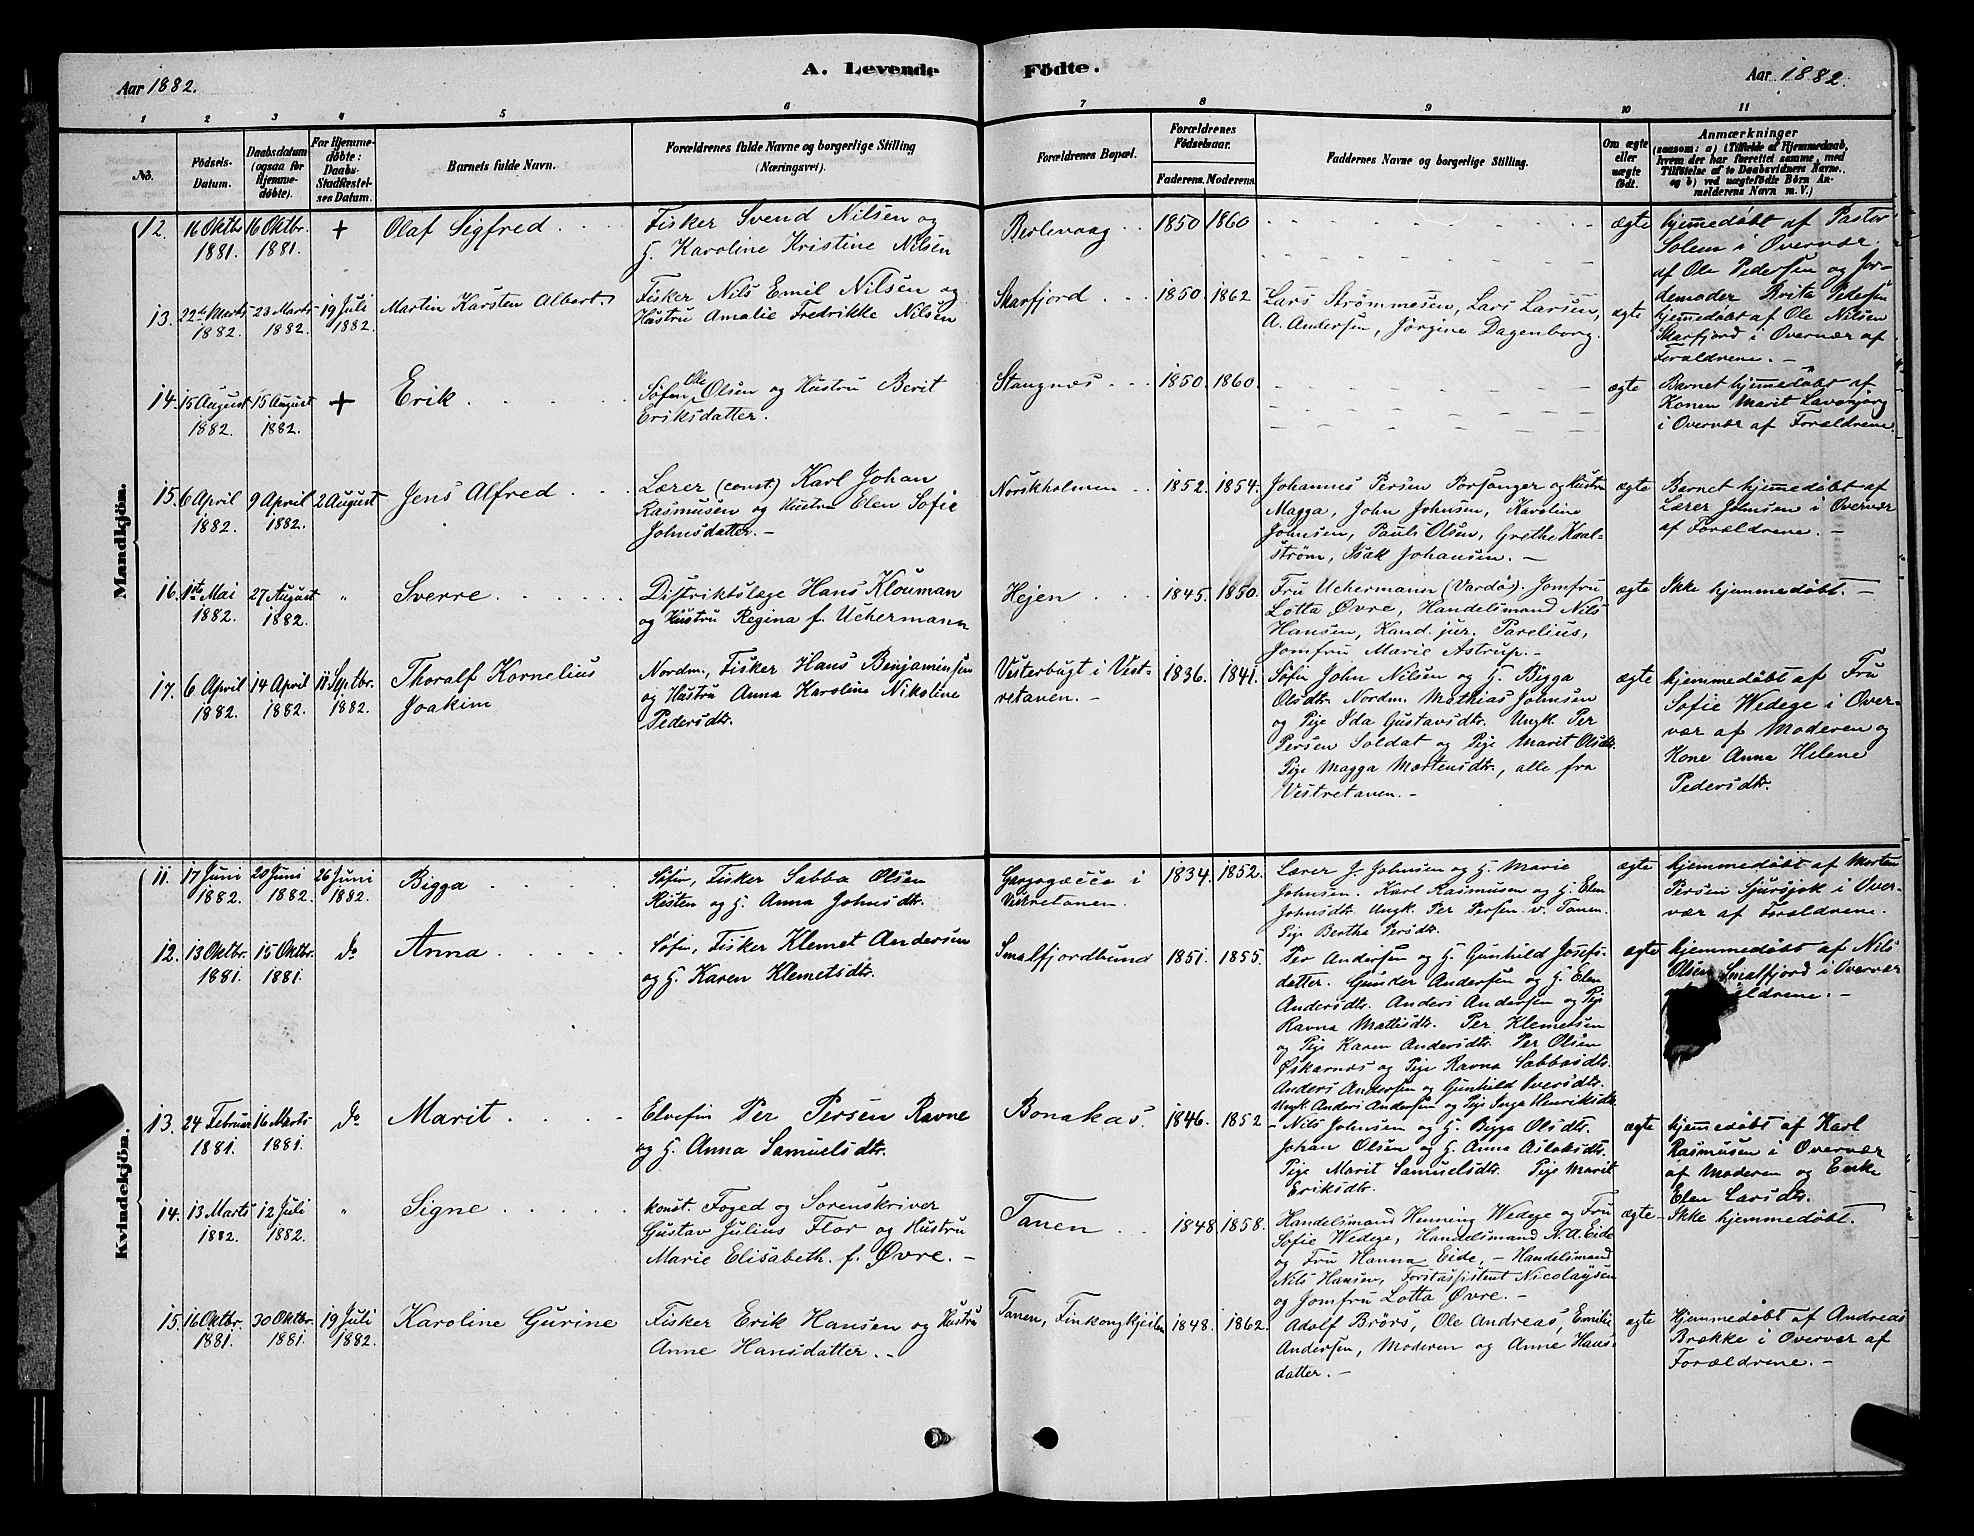 Aar 1882.
A. Levende
Födte.
Aar 1882.
1 2 3 4 5 6 7 8 9 10 11
No.
Födsels-
Datum.
Daabsdatum
(ogsaa for
Hjemme-
döbte).
For Hjemme-
döbte:
Daabs-
Stadfæstel-
ses Datum.
Barnets fulde Navn.
Forældrenes fulde Navne og borgerlige Stilling
(Næringsvei).
Forældrenes Bopæl.
Forældrenes
Födselsaar.
Faderens. Moderens.
Faddernes Navne og borgerlige Stilling.
Om ægte
eller
uægte
født.
Anmærkninger
(saasom: a) i Tilfælde af Hjemmedaab,
hvem der har forrettet samme, med
Tilföielse af to Daabsvidners Navne,
og b) ved uægtefödte Börn An-
melderens Navn m. V.)
Mandkjön.
12. 16 Oktbr 1881. 16 Oktbr. 1881. + Olaf Sigfred
Fisker Svend Nilsen og
H. Karoline Kristine Nilsen
Berlevaag 1850 1860
ægte
hjemmedøbt af Pastor
Solem i Overvær
af Ole Pedersen og Jor-
demoder Brita Pedersen
13. 22de Marts 1882. 23 Marts 1882. 19 Juli 1882. Martin Karsten Albert
Fisker Nils Emil Nilsen og
Hustru Amalie Fredrikke Nilsen
Skarfjord 1850 1862
Lars Strømmesen, Lars Larsen,
A. Andersen, Jörgine Dagenborg.
ægte
hjemmedøbt af Ole Nilsen
Skarfjord i Overvær af
Forældrene. —
14. 15 August 1882. 15 August 1882. + Erik
Søfin Ole Olsen og Hustru Berit
Eriksdatter.
Stangnæs 1850 1860.
ægte
Barnet hjemmedøbt af
Konen Marit
i Overvær af Forældrene.
15. 6 April 1882. 9 April 1882. 2 August Jens Alfred
Lærer (const.) Karl Johan
Rasmusen og Hustru Elen Sofie
Johnsdatter. —
Norskholmen 1852. 1854.
Johannes Persen Porsanger og Hustru
Magga, John Johnsen, Karoline
Johnsen, Pauls Olsen, Grethe Kval-
strøm, Isak Johansen. —
ægte
Barnet hjemmedøbt af
Lærer Johnsen i Overvær
af Forældrene. —
16. 1ste Mai 1882. 27 August 1882. " Sverre
Distriktslæge Hans Klouman
og Hustru Regina f. Uchermann
Hejen 1845. 1850.
Fru Uchermann (Vardö). Jomfru
Lotta Øvre, Handelsmand Nils
Hansen, Kand. jur. Parelius,
Jomfru Marie Astrup. —
ægte
Ikke hjemmedøbt. —
17. 6 April 1882. 14 April 1882. 18 Septbr. 1882. Thoralf Kornelius
Joakim
Nordm., Fisker Hans Benjaminsen
og Hustru Anna Karolina Nikoline
Pedersdtr.
Vesterbugt i Vest-
retanen. — 1836. 1841.
Søfin John Nilsen og H. Bigga
Olsdtr. Nordm. Mathias Johnsen
og Pige Ida Gustavsdtr. Ungk. Per
Persen Soldat og Pige Marit Olsdtr.
Pige Magga Mortensdtr., alle fra
Vestretanen. —
ægte
hjemmedøbt af Fru
Sofie Wedege i Over-
vær af Moderen og
Kone Anna Helene
Pedersdtr.
Kvindekjön.
11. 17 Juni 1882. 20 Juni 1882. 26 Juni 1882. Bigga
Søfin, Fisker Sabba Olsen
Risten og H. Anna Johnsdtr.
i
Vestretanen. 1834. 1852.
Lærer J. Johnsen og H. Marie
Johnsen. Karl Rasmusen og H. Elen
Johnsdtr. Ungk. Per Persen v. Tanen.
Pige Bertha Persdtr.
ægte
hjemmedøbt af Morten
Persen Sjursjok i Over-
vær af Forældrene.
12. 13 Oktbr. 1881. 15 Oktbr. 1881. do Anna
Søfin, Fisker Klemet Andersen
og H. Karen Klemetsdtr.
Smalfjordbund 1851. 1855.
Per Andersen og H. Gunhild Josefs-
datter. Gunder Andersen og H. Elen
Andersdtr. Anders Andersen og Pige
Ravna Mattisdtr. Per Klemetsen
og Pige Karen Andersdtr. Per Olsen
Øskarnæs og Pige Ravna Sabbasdtr.
Anders Andersen og Gunhild Iversdtr.
Ungk. Anders Andersen og Pige Inga Henriksdtr.
ægte
hjemmedøbt af Nils
Olsen Smalfjord i Overvær
ældrene. —
13. 24 Februar 1881. 16 Marts 1881. do Marit
Elvefin Per Persen Ravne
og H. Anna Samuelsdtr.
Bonakas. 1846. 1852
— Nils Johnsen og H. Bigga Olsdtr.
Johan Olsen og H. Anna Aslaksdtr.
Pige Marit Samuelsdtr. Pige Marit
Eriksdtr.
ægte
hjemmedøbt af Karl
Rasmusen i Overvær
af Moderen og Enke
Elen Larsdtr.
14. 13 Marts 1882. 12 Juli 1882. " Signe
konst. Foged og Sorenskriver
Gustav Julius Flor og Hustru
Marie Elisabeth f. Øvre. —
Tanen 1848 1858.
Handelsmand Henning Wedege og Fru
Sofie Wedege, Handelsmand N. A. Eide
og Fru Hanna Eide, — Handelsmand
Nils Hansen, Forstassistent Nicolaysen
og Jomfru Lotta Øvre. —
ægte
Ikke hjemmedøbt.
15. 16 Oktbr. 1881. 30 Oktbr. 1881. 19 Juli 1882. Karoline Gurine
Fisker Erik Hansen og Hustru
Anne Hansdatter. —
Tanen, Finkongkjeilen 1848. 1862.
Adolf Brörs, Ole Andreas, Emilie
Andersen, Moderen og Anne Hans-
datter. —
ægte
hjemmedøbt af Andreas
Brække i Overvær af
Forældrene. —